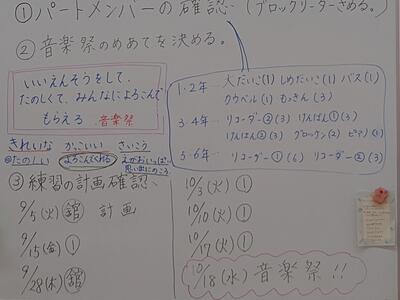 ①パートメンバーの確認、(ブロックリーダーきめる。)
②音楽祭のめあてを決める。
いいえんそうをして、
たのしくて、みんなによろこんで
もらえる 音楽祭
きれいな かっこいい さいこう
@たのしい よろこんでくれる えがおいっぱい
思い出にのこる
1・2年… 大だいこ(1) しめだいこ(1) バス(1)
カウベル(1) もっきん(3)
3・4年… リコーダー②(3) けんばん①(3)
けんばん②(3) グロッケン(2) ピアノ(1)
5・6年… リコーダー①(6) リコーダー②(3)
③練習の計画確認、
9/5(火)館 計画
9/15(金)①
9/28(木)館
10/3(火)①
10/10(火)①
10/17(火)①
10/18(水)音楽祭!!